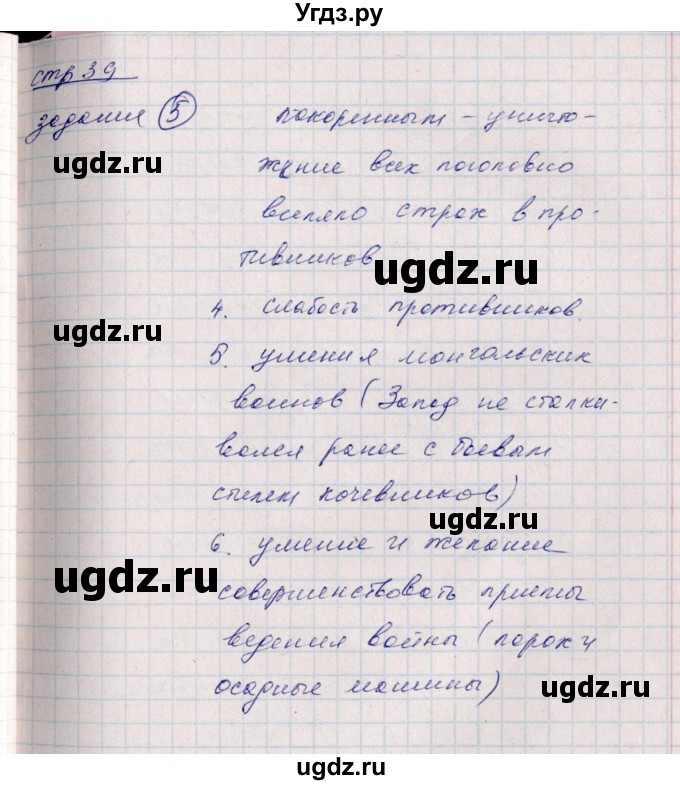 Угдз.ру
стр 39
задание 5 покоренным - уничто-
жение всех поголовно
ugdz.ru
вселяло страх в про-
тивников
ugdz.ru
4. слабость противников.
ugdz.ru
5. умения монгольских
воинов (Запад не сталки-
вался ранее с боевым
стилем кочевников)
ugdz.ru
6. умение и желание
ugdz.ru
совершенствовать приемы
ведения войны (порох и
осадные машины)
ugdz.ru
ugdz.ru